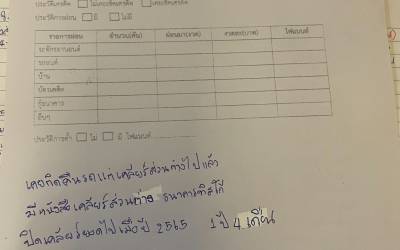 ประวัติเครดิต □ ไม่เคยเสียเครดิต □ เคยเสียเครดิต
ประวัติการผ่อน □ มี □ ไม่มี
รายการผ่อน จำนวน(คัน) ผ่อนมา(งวด) งวดละ(บาท) ไฟแนนซ์
รถจักรยานยนต์
รถยนต์
บ้าน
บัตรเครดิต
กู้ธนาคาร
อื่นๆ
ประวัติการค้ำ □ ไม่ □ มี ไฟแนนซ์
เคยคืนรถแต่เคลียร์ส่วนต่างไปแล้ว
มีหนังสือเคลียร์ส่วนต่าง ธนาคารทิสโก้
ปิดเคลียร์ยอดไปเมื่อปี 2565 1 ปี 4 เดือน